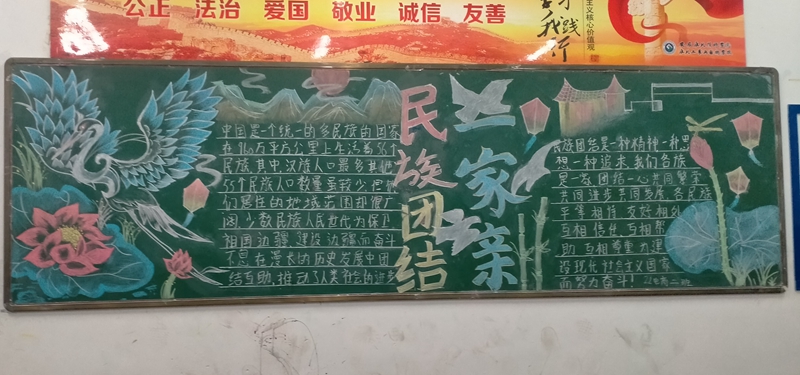 公正 法治 爱国 敬业 诚信 友善
我践行
主义核心价值观
民族团结
一家亲
中国是个统一的多民族的国家
在960万平方公里上生活着56个
民族,其中,汉族人口最多,其他
55个民族人口数量虽较少,但他
们居住的地域范围却很广
阔,少数民族人民世代为保卫
祖国边疆 建设边疆而奋斗
不息,在漫长的历史发展中团
结互助,推动了人类社会的进步
民族团结是一种精神一种思
想一种追求我们各族
是一家团结一心共同繁荣
共同进步共同发展各民族
平等相待 友好相处
互相信任 互相帮
助 互相尊重 为建
设现代社会主义国家
而努力奋斗!